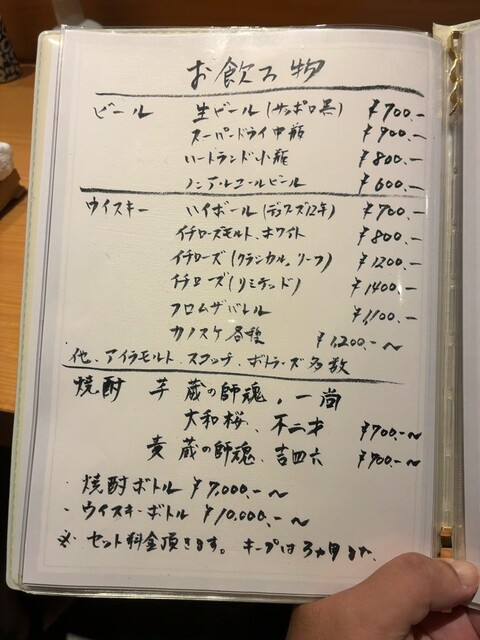 お飲み物
ビール 生ビール(サッポロ黒) ¥700.-
スーパードライ中瓶 ¥900.-
ハートランド小瓶 ¥800.-
ノンアルコールビール ¥600.-
ウイスキー ハイボール(デュワーズ12年) ¥700.-
イチローズモルト、ホワイト ¥800.-
イチローズ(クラシカル、リーフ) ¥1200.-
イチローズ(リミテッド) ¥1400.-
フロムザバレル ¥1,100.-
カノスケ各種 ¥1200.-～
他、アイラモルト、スコッチ、ボトラーズ多数
焼酎 芋 蔵の師魂、一尚
大和桜、不二才 ¥700-～
麦 蔵の師魂、吉四六 ¥700-～
・焼酎ボトル ¥7,000.-～
・ウイスキーボトル ¥10,000.-～
※ セット料金頂きます。キープは3ヵ月